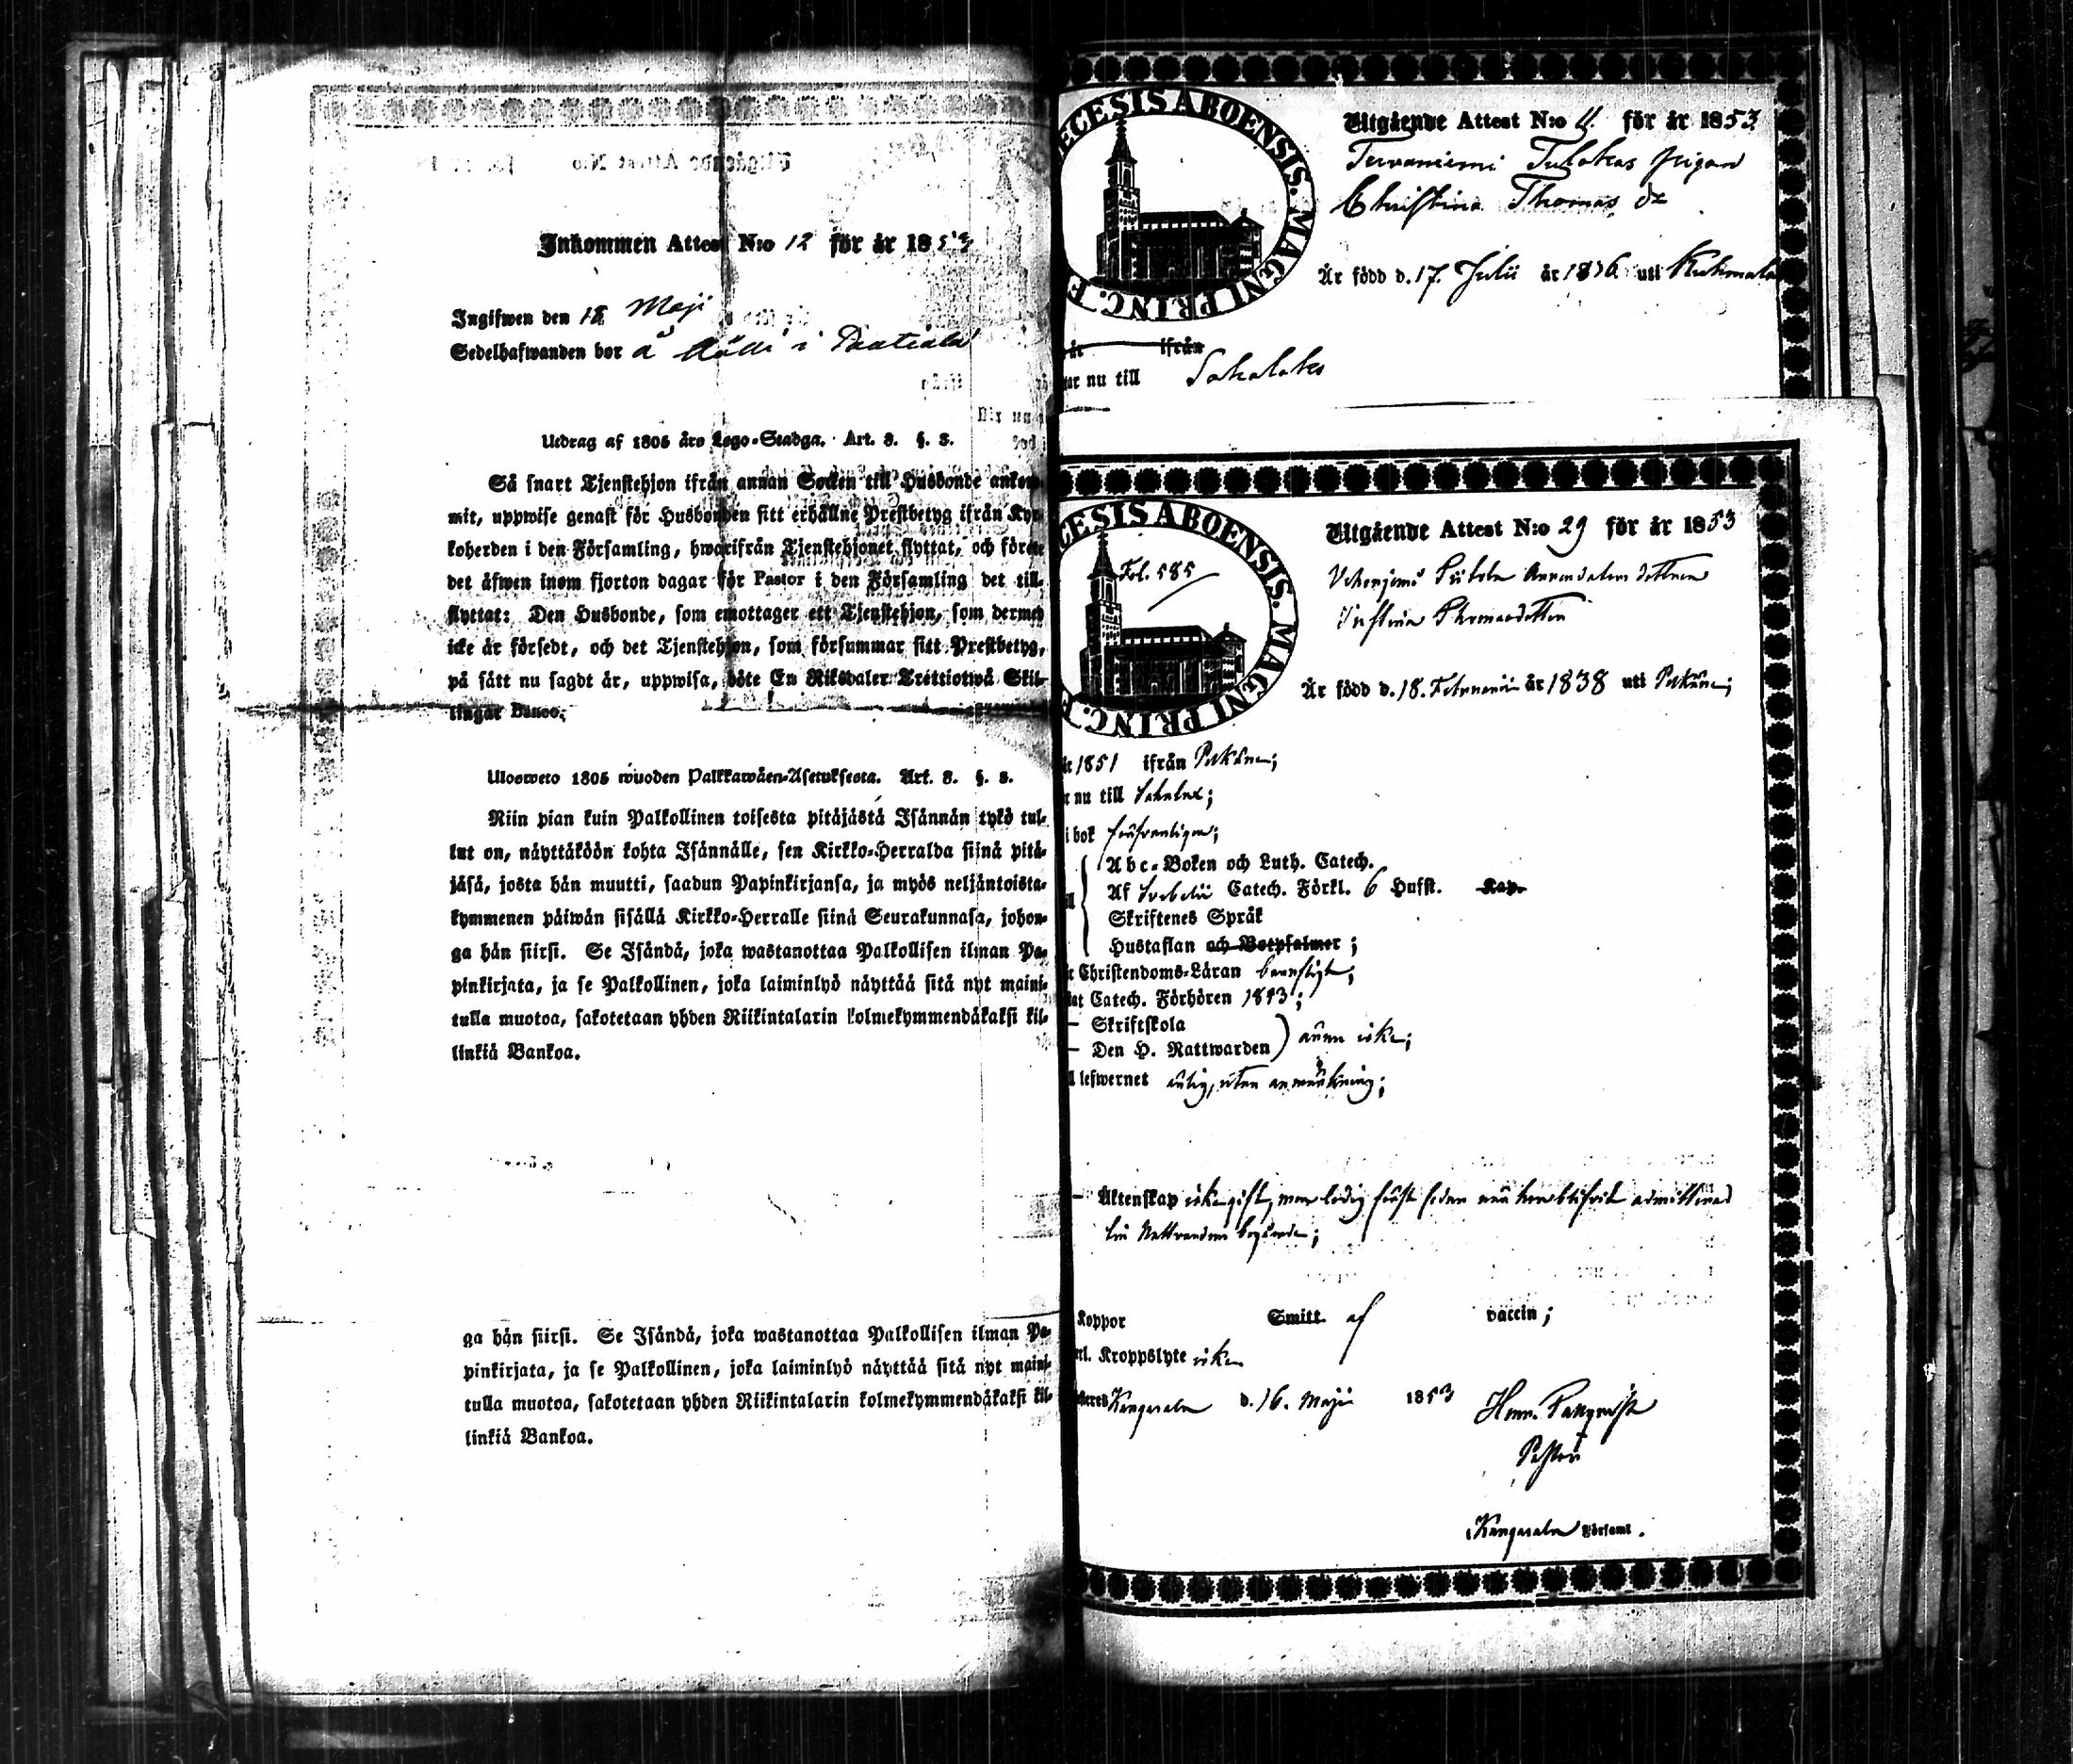 Inkommen Attest N:o 12 för år 1853
Ingifwen den 18 Maji
Sedelhafwanden bor å Källi i Pautiala
Utdrag af 1805 års Lego-Stadga. Art. 8. §. 3.
Så snart Tjenstehjon ifrån annan Socken till Husbonde ankom-
mit, uppwise genast för Husbonden sitt erhållne Prestbetyg ifrån Kyr-
koherden i den Församling, hwarifrån Tjenstehjonet flyttat, och förete
det äfwen inom fjorton dagar för Pastor i den Församling det till-
flyttat: Den Husbonde, som emottager ett Tjenstehjon, som dermed
icke är försedt, och det Tjenstehjon, som försummar sitt Prestbetyg,
på sätt nu sagdt är, uppwisa, böte En Riksdaler Trettiotwå Skil-
lingar Banco.
Ulosweto 1805 wuoden Palkkawäen-Asetuksesta. Art. 8. §. 3.
Niin pian kuin Palkollinen toisesta pitäjästä Isännän tykö tul-
lut on, näyttäköön kohta Isännälle, sen Kirkko-Herralda siinä pitä-
jäsä, josta hän muutti, saadun Papinkirjansa, ja myös neljäntoista-
kymmenen päiwän sisällä Kirkko-Herralle siinä Seurakunnasa, johon-
ga hän siirsi. Se Isändä, joka wastanottaa Palkollisen ilman Pa-
pinkirjata, ja se Palkollinen, joka laiminlyö näyttää sitä nyt maini-
tulla muotoa, sakotetaan yhden Riikintalarin kolmekymmendäkaksi kil-
linkiä Bankoa.
ga hän siirsi. Se Isändä, joka wastanottaa Palkollisen ilman Pa-
pinkirjata, ja se Palkollinen, joka laiminlyö näyttää sitä nyt maini-
tulla muotoa, sakotetaan yhden Riikintalarin kolmekymmendäkaksi kil-
linkiä Bankoa.
ECESIS ABOENSIS. MAGNI PRINC. F
Utgående Attest N:o 11. för år 1853.
Tervaniemi Tulokas pigan
Christina Thomas dr
Är född d. 17. Julii år 1836 uti Kuhmala
år ifrån
ar nu till Sahalaks
CESIS ABOENSIS. MAGNI PRINC. F
Fol. 585
Utgående Attest N:o 29 för år 1853
Justina Thomasdotter
Är född d. 18. Februarii år 1838 uti Pelkäne;
år 1851 ifrån Pelkäne;
r nu till Sahalax;
i bok försvarligen;
Abc-Boken och Luth. Catech.
Af Svebelii Catech. Förkl. 6 Hufst. Kap.
Skriftenes Språk
Hustaflan och Botpsalmer;
Christendoms-Läran benusligt;
Catech. Förhören 1853;
— Skriftskola
— Den H. Nattwarden } ännu icke;
lefwernet ärlig, utan anmärkning;
— Äktenskap icke gift, men ledig först sedan när hon blifvit admitterad
till Nattvardens begående;
Koppor Smitt. af vaccin;
Kroppslyte icke
Kangasala d. 16. Maji 1853
Pastor
Kangasala Församl.